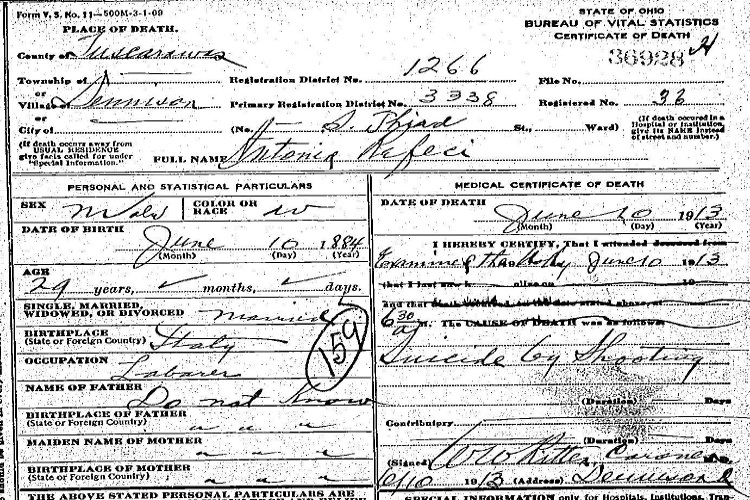 Form V. S. No. 11—500M-3-1-09
PLACE OF DEATH.
County of Tuscarawas
Township of
or
Village of Dennison
or
City of
(If death occurs away from
USUAL RESIDENCE
give facts called for under
"Special Information.")
STATE OF OHIO
BUREAU OF VITAL STATISTICS
CERTIFICATE OF DEATH
36928
Registration District No. 1266
File No.
Primary Registration District No. 3338
Registered No. 36
(No. — S. Third St., Ward)
(If death occured in a
Hospital or Institution,
give its NAME instead
of street and number.)
FULL NAME Antonia Refeci
PERSONAL AND STATISTICAL PARTICULARS
SEX Male
COLOR OR
RACE W
DATE OF BIRTH
June 10 1884
(Month) (Day) (Year)
AGE
29 years, months, days.
SINGLE, MARRIED,
WIDOWED, OR DIVORCED Married
BIRTHPLACE
(State or Foreign Country) Italy
159
OCCUPATION
Laborer
NAME OF FATHER Do not Know
BIRTHPLACE OF FATHER
(State or Foreign Country) " " "
MAIDEN NAME OF MOTHER
" " "
BIRTHPLACE OF MOTHER
(State or Foreign Country) " " "
THE ABOVE STATED PERSONAL PARTICULARS ARE
MEDICAL CERTIFICATE OF DEATH
DATE OF DEATH
June 10 1913
(Month) (Day) (Year)
I HEREBY CERTIFY, That I attended deceased from
Examined the Body June 10 1913
that I last saw h alive on 19
and that death occurred, on the date stated above, at
6 30 M. The CAUSE OF DEATH was as follows:
Suicide by Shooting
(Duration) Days
Contributory
(Duration) Days
(Signed) Coroner M.D.
6/10 1913 (Address) Dennison O
SPECIAL INFORMATION only for Hospitals, Institutions, Tran-